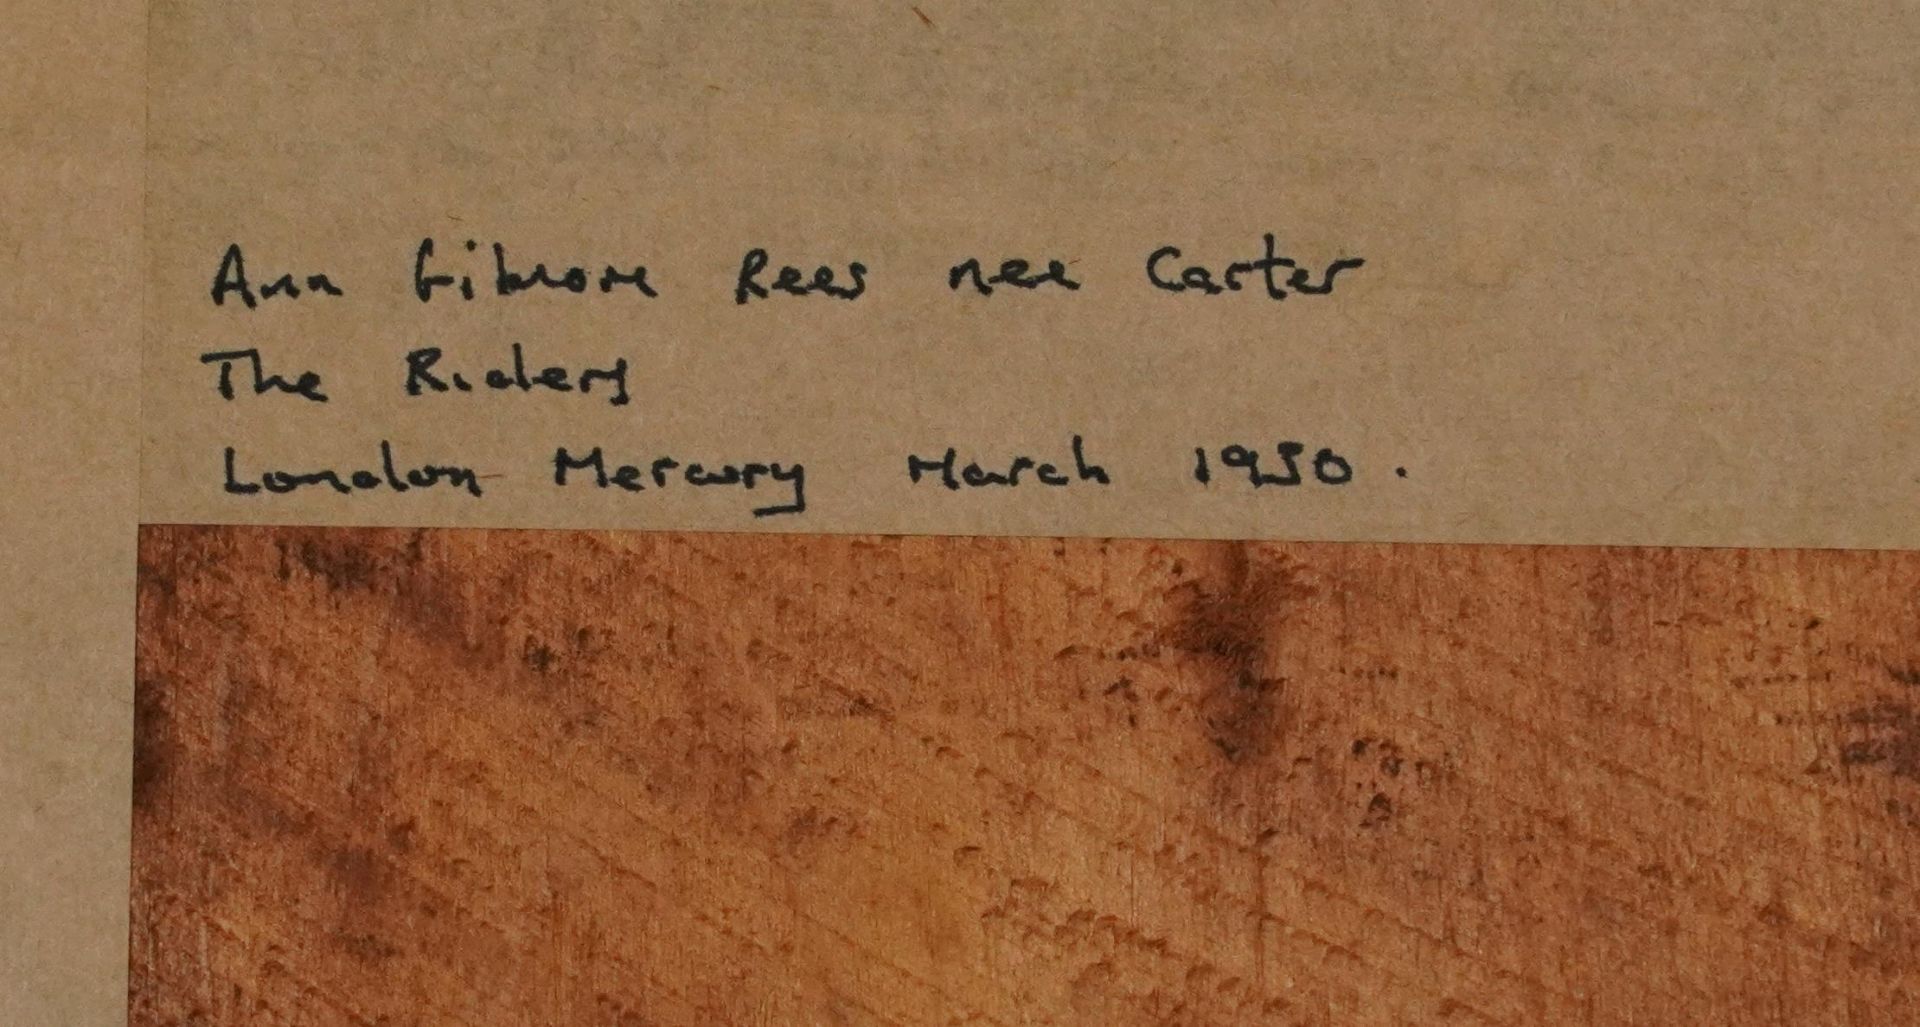 Ann Gilmore Rees nee Carter
The Riders
London Mercury March 1930.